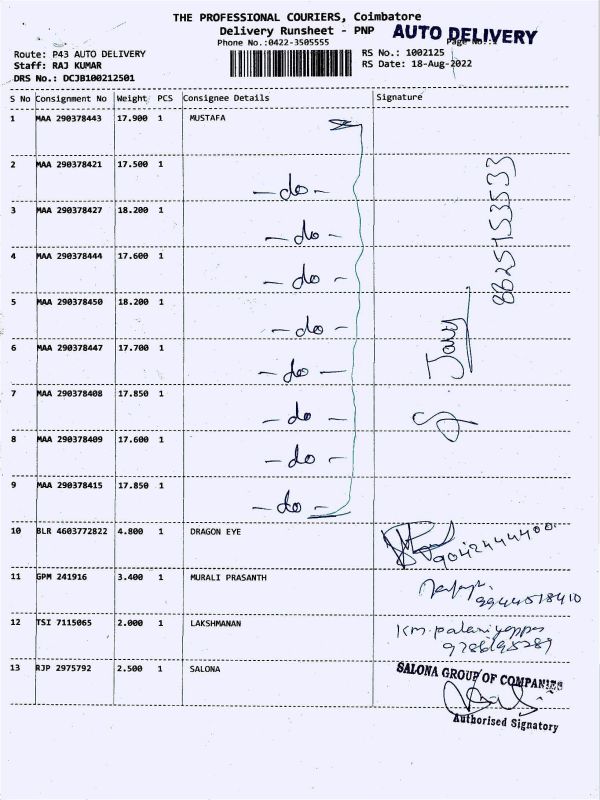 THE PROFESSIONAL COURIERS, Coimbatore
Delivery Runsheet - PNP
AUTO DELIVERY
Phone No.:0422-3505555
Route: P43 AUTO DELIVERY
RS No.: 1002125
Staff: RAJ KUMAR
RS Date: 18-Aug-2022
DRS No.: DCJB100212501
S No Consignment No Weight PCS Consignee Details Signature
1 MAA 290378443 17.900 1 MUSTAFA
2 MAA 290378421 17.500 1 - do -
3 MAA 290378427 18.200 1 - do -
4 MAA 290378444 17.600 1 - do -
5 MAA 290378450 18.200 1 - do -
6 MAA 290378447 17.700 1 - do -
7 MAA 290378408 17.850 1 - do -
8 MAA 290378409 17.600 1 - do -
9 MAA 290378415 17.850 1 - do -
8625153533
10 BLR 4603772822 4.800 1 DRAGON EYE 9042444400
11 GPM 241916 3.400 1 MURALI PRASANTH 9944518410
12 TSI 7115065 2.000 1 LAKSHMANAN
13 RJP 2975792 2.500 1 SALONA
SALONA GROUP OF COMPANIES
Authorised Signatory